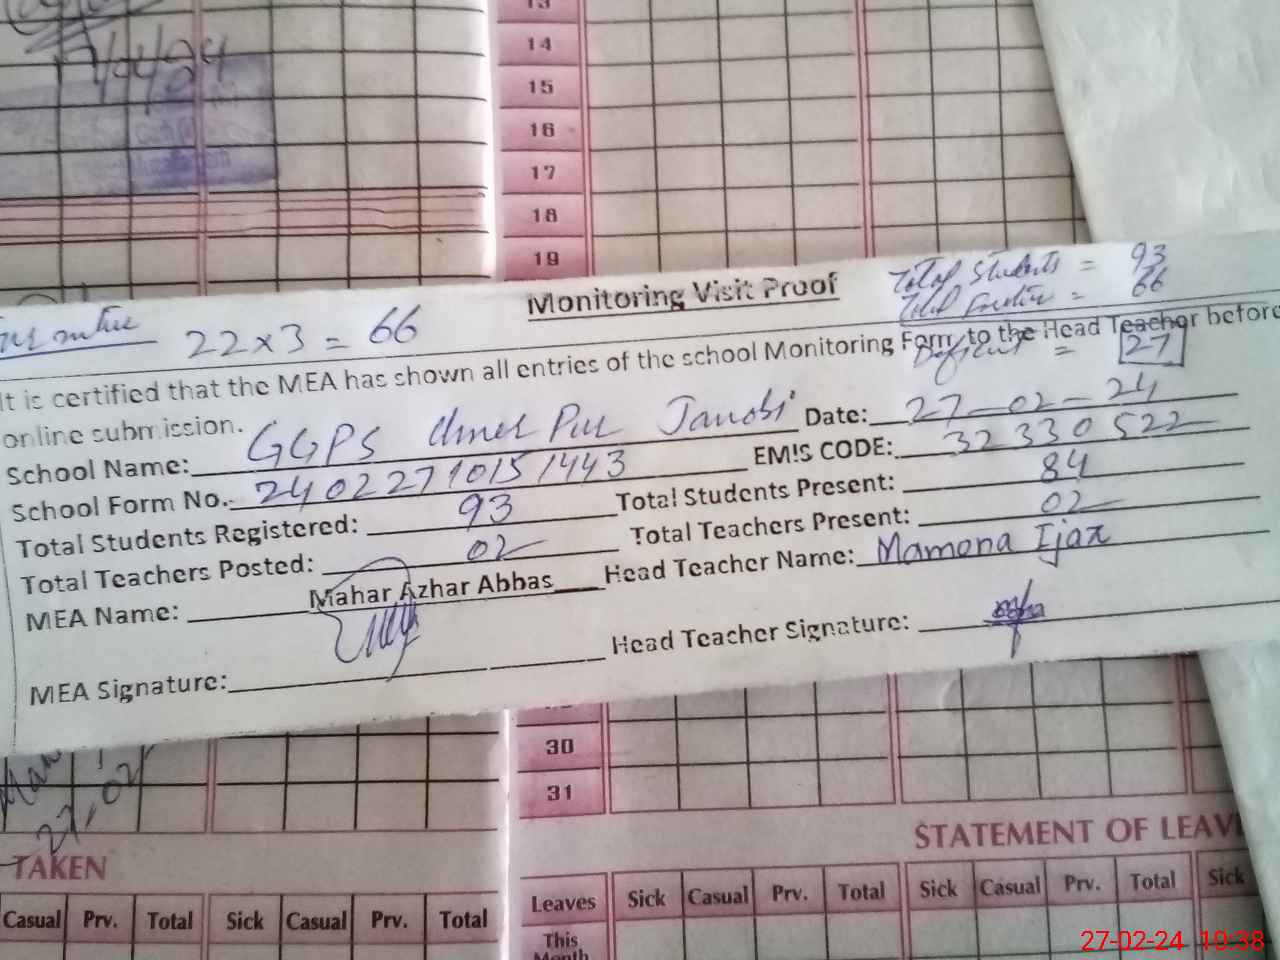 13
14
15
16
17
18
19
Monitoring Visit Proof
Total Students = 93
Total = 66
= 27
22 x 3 = 66
It is certified that the MEA has shown all entries of the school Monitoring Form to the Head Teacher before
online submission.
School Name: GGPS Pur Janobi Date: 27-02-24
School Form No. 24022710151443 EMIS CODE: 32330522
Total Students Registered: 93 Total Students Present: 84
Total Teachers Posted: 02 Total Teachers Present: 02
MEA Name: Mahar Azhar Abbas Head Teacher Name: Mamona Ijaz
MEA Signature: Head Teacher Signature:
30
31
TAKEN STATEMENT OF LEAV
Casual Prv. Total Sick Casual Prv. Total Leaves Sick Casual Prv. Total Sick Casual Prv. Total Sick
This
Month
27-02-24 10:38